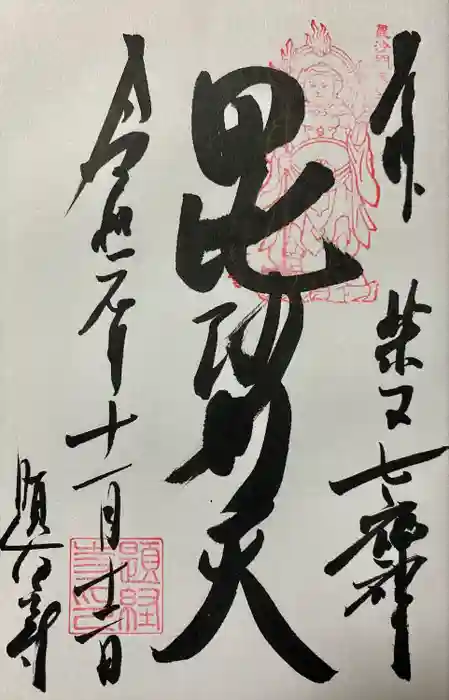 奉拝
柴又七福神
毘沙門天
令和元年十一月十二日
題経寺
題経寺印